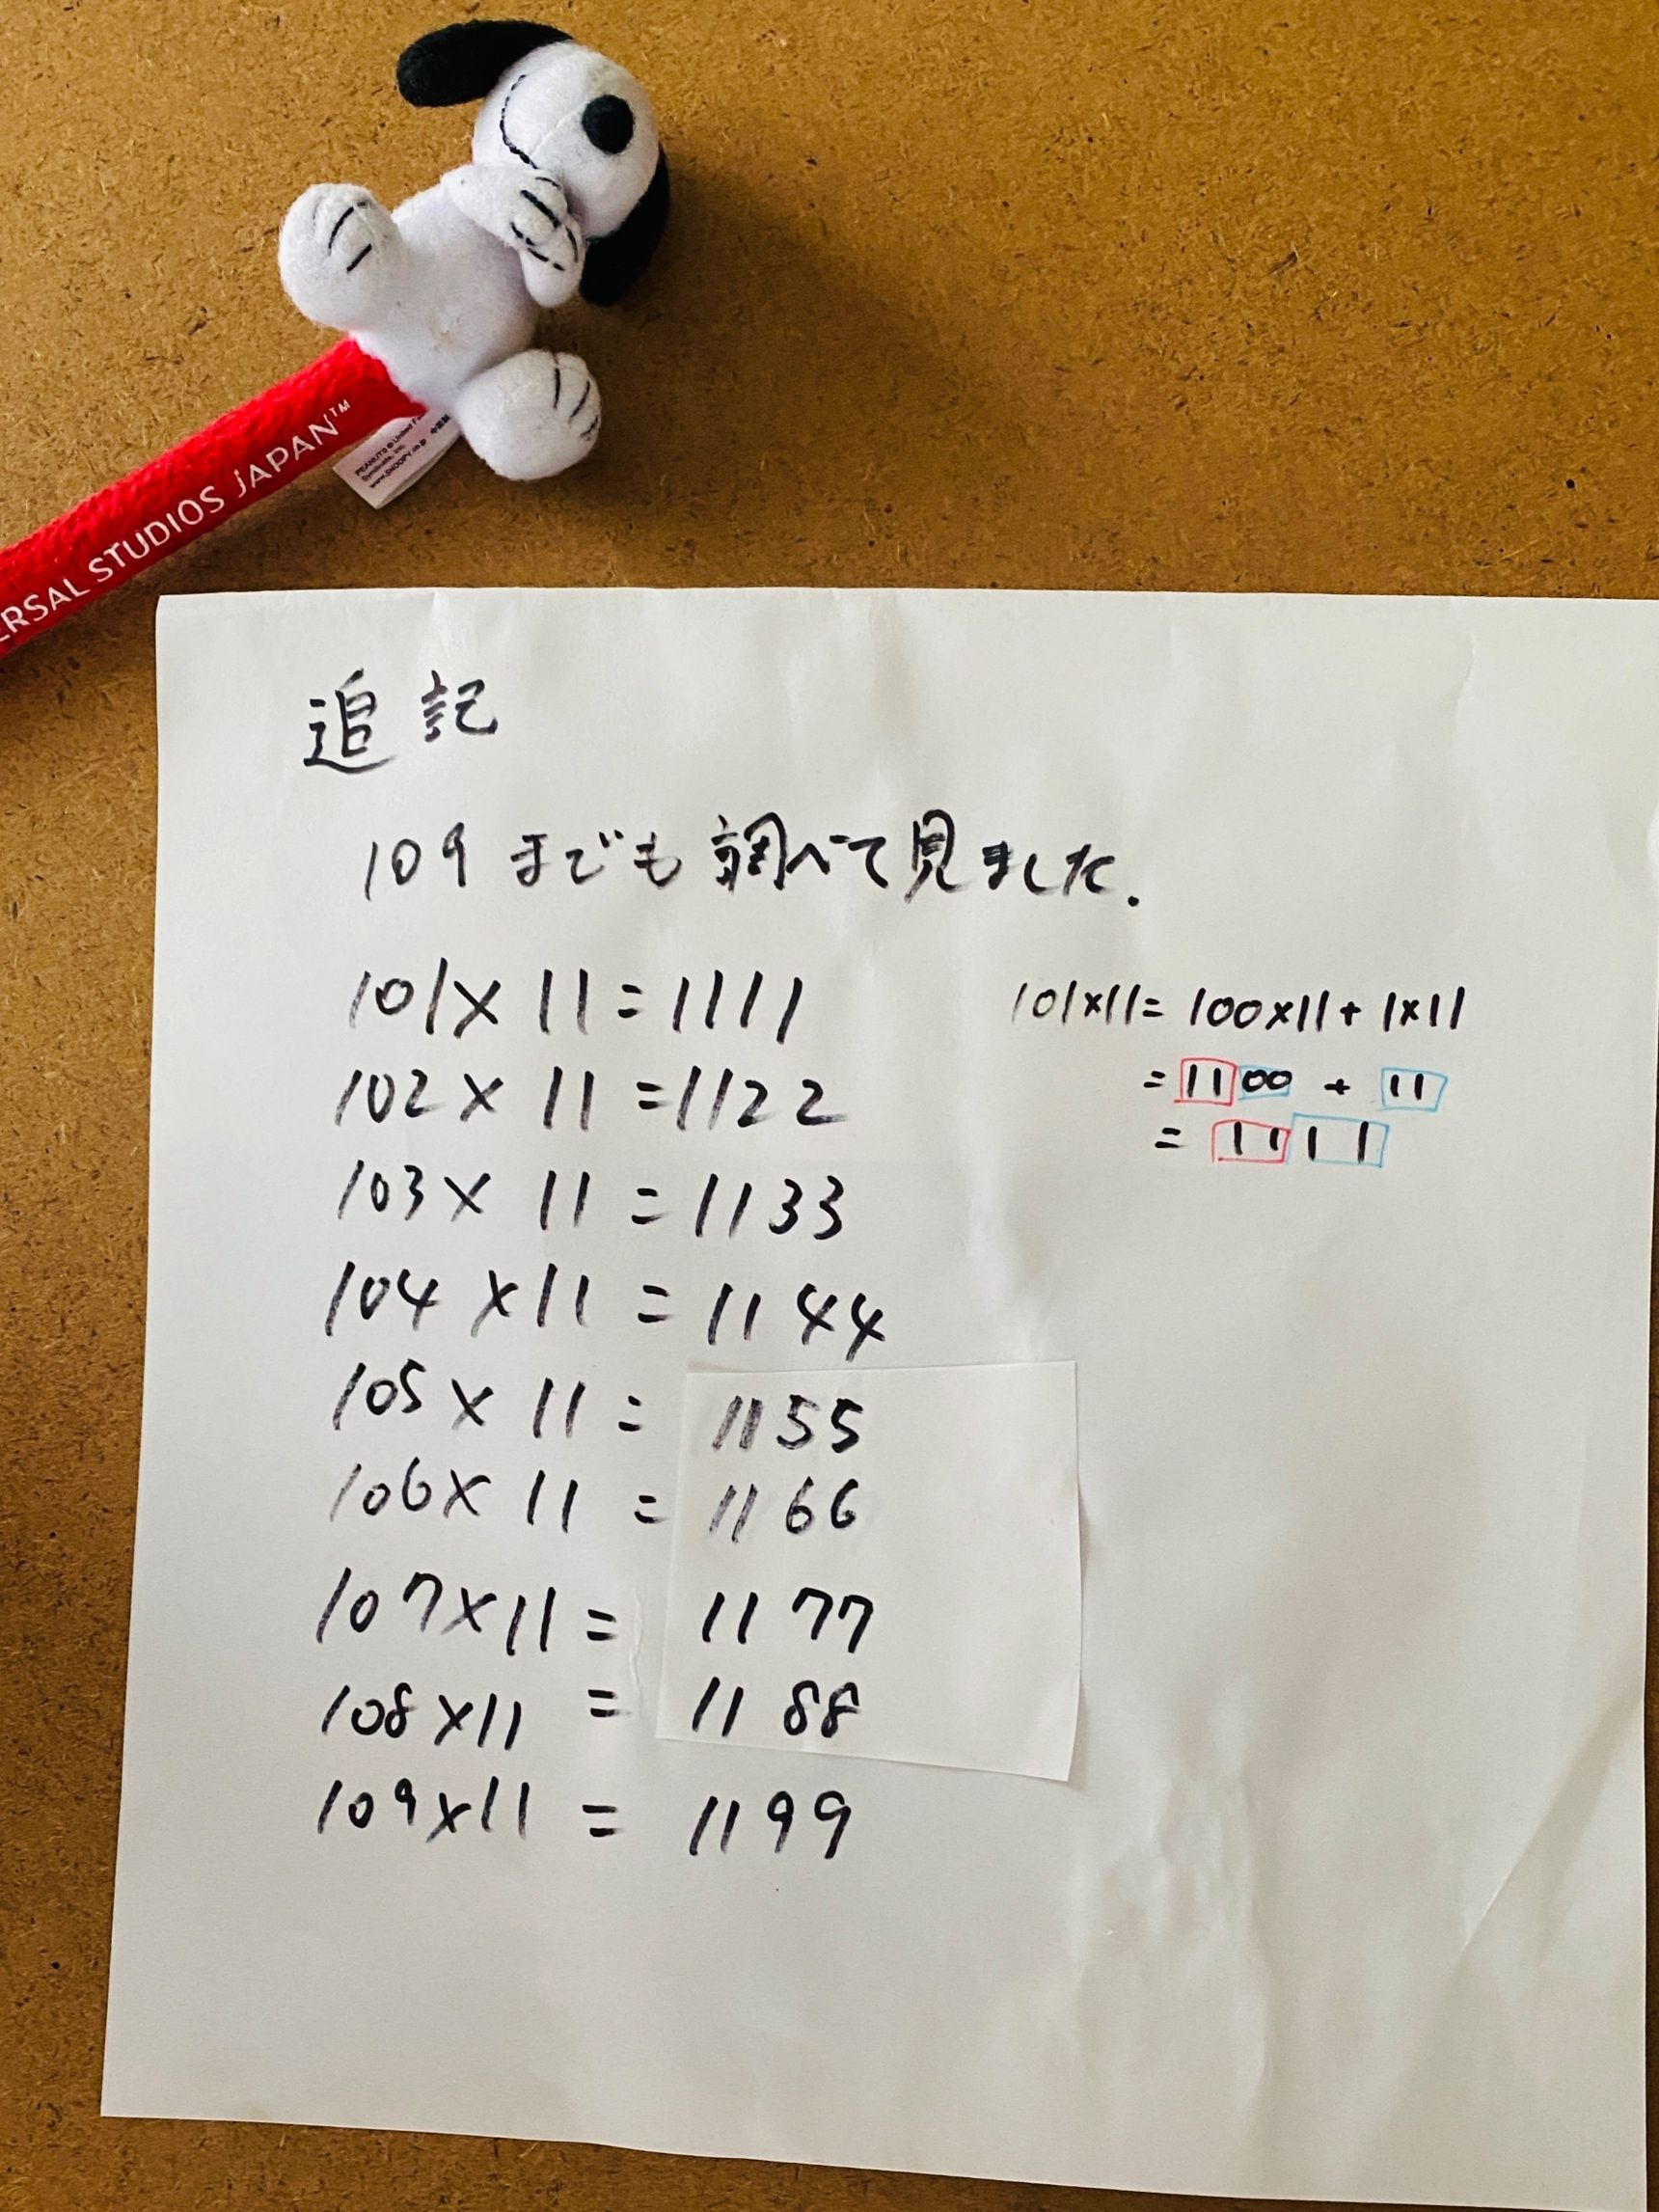 ERSAL STUDIOS JAPAN™
追記
109までも調べて見ました.
101×11=1111
102×11=1122
103×11=1133
104×11=1144
105×11=1155
106×11=1166
107×11=1177
108×11=1188
109×11=1199
101×11=100×11+1×11
=1100+11
=1111